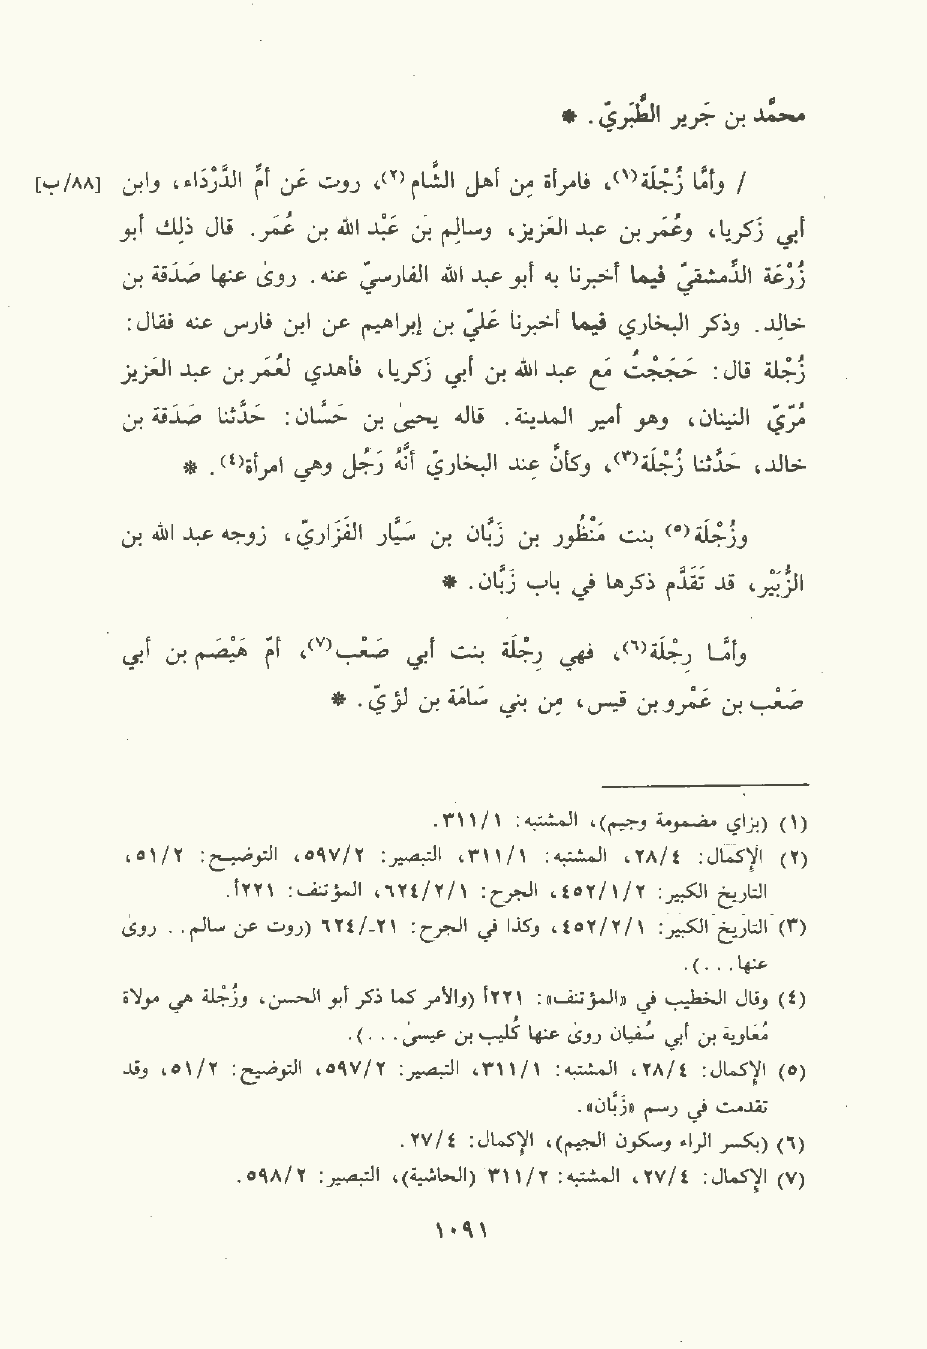 محمَّد بن جَرير الطَّبَريّ. *
/ وأمَّا زُجْلَة(١)، فامرأة مِن أهل الشَّام(٢)، روت عَن أُمّ الدَّرْدَاء، وابن [٨٨/ب]
أبي زَكريا، وعُمَر بن عبد العَزيز، وسالِم بن عَبْد الله بن عُمَر. قال ذلِك أبو
زُرْعَة الدِّمشقيّ فيما أخبرنا به أبو عبد الله الفارسيّ عنه. روىٰ عنها صَدَقة بن
خالِد. وذكر البخاري فيما أخبرنا عَليّ بن إبراهيم عن ابن فارس عنه فقال:
زُجْلة قال: حَجَجْتُ مَع عبد الله بن أبي زَكريا، فأهدى لعُمَر بن عبد العَزيز
مُرِّيّ النينان، وهو أمير المدينة. قاله يحيىٰ بن حَسَّان: حَدَّثنا صَدَقة بن
خالد، حَدَّثنا زُجْلَة(٣)، وكأنَّ عِند البخاريّ أنَّهُ رَجُل وهي امرأة(٤). *
وزُجْلَة(٥) بنت مَنْظُور بن زَبَّان بن سَيَّار الفَزَاريّ، زوجه عبد الله بن
الزُّبَيْر، قد تَقَدَّم ذكرها في باب زَبَّان. *
وأمَّا رِجْلَة(٦)، فهي رِجْلَة بنت أبي صَعْب(٧)، أمّ هَيْصَم بن أبي
صَعْب بن عَمْرو بن قيس، مِن بني سَامَة بن لؤيّ. *
(١) (بزاي مضمومة وجيم)، المشتبه: ٣١١/١.
(٢) الإكمال: ٢٨/٤، المشتبه: ٣١١/١، التبصير: ٥٩٧/٢، التوضيح: ٥١/٢،
التاريخ الكبير: ٤٥٢/١/٢، الجرح: ٦٢٤/٢/١، المؤتنف: ٢٢١أ.
(٣) التاريخ الكبير: ٤٥٢/٢/١، وكذا في الجرح: ٢١-/٦٢٤ (روت عن سالم.. وروىٰ
عنها...).
(٤) وقال الخطيب في «المؤتنف»: ٢٢١أ (والأمر كما ذكر أبو الحسن، وزُجْلة هي مولاة
مُعاوية بن أبي سُفيان روىٰ عنها كُليب بن عيسىٰ...).
(٥) الإكمال: ٢٨/٤، المشتبه: ٣١١/١، التبصير: ٥٩٧/٢، التوضيح: ٥١/٢، وقد
تقدمت في رسم «زَبَّان».
(٦) (بكسر الراء وسكون الجيم)، الإكمال: ٢٧/٤.
(٧) الإكمال: ٢٧/٤، المشتبه: ٣١١/٢ (الحاشية)، التبصير: ٥٩٨/٢.
١٠٩١